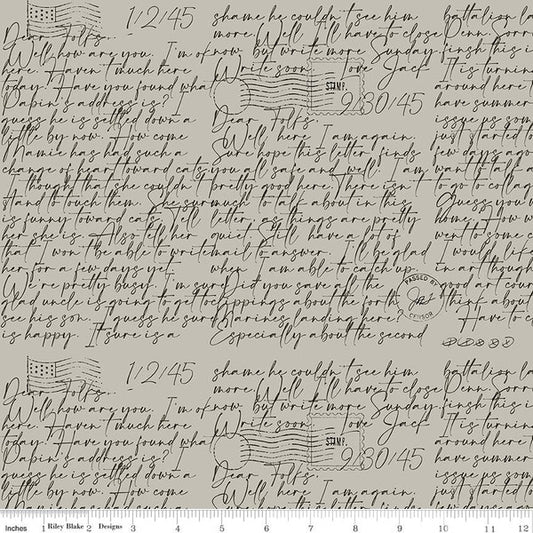 1/2/45
Dear Folks.
Well, how are you. I'm of
here. Haven't much here
today. Have you found wha
Papin's address is?
guess he is settled down a
little by now. How come
Mamie has had such a
change of heart toward cats
I thought that she couldn't
stand to touch them. She sur
is funny toward cats. Tell
her she is. Also tell her
that I won't be able to write
her for a few days yet.
We're pretty busy. I'm sure
glad uncle is going to get to
see his son. I guess he sure
is happy. It sure is a
shame he couldn't see him
more. Well I'll have to close
now but write more Sunday.
Write soon Love Jack
STAMP.
9/30/45
Dear Folks.
Well here I am again.
Sure hope this letter finds
you all safe and well. I am
pretty good here. There isn't
much to talk about in this
letter, as things are pretty
quiet. Still have a lot of
mail to answer. I'll be glad
when I am able to catch up.
Did you save all the
clippings about the forth
Marines landing here?
Especially about the second
battalion la
Dean Sorr
finsh this i
It is turnin
around here t
have summer
issue us som
just started to
few days ago
want to talk a
to go to collag
Guess you w
home. How w
went to scho
I would like
in art though
good art cour
think about
Have to c
PASSED BY
CENSOR
1/2/45
Dear Folks.
Well, how are you. I'm of
here. Haven't much here
today. Have you found wha
Papin's address is?
guess he is settled down a
little by now. How come
shame he couldn't see him
more. Well I'll have to close
now but write more Sunday.
Write soon Love Jack
STAMP.
9/30/45
Dear Folks.
Well here I am again.
battalion la
Dean Sorr
finsh this i
It is turnin
around here t
have summer
issue us som
just started to
Inches 1 Riley Blake 2 Designs 3 4 5 6 7 8 9 10 11 12